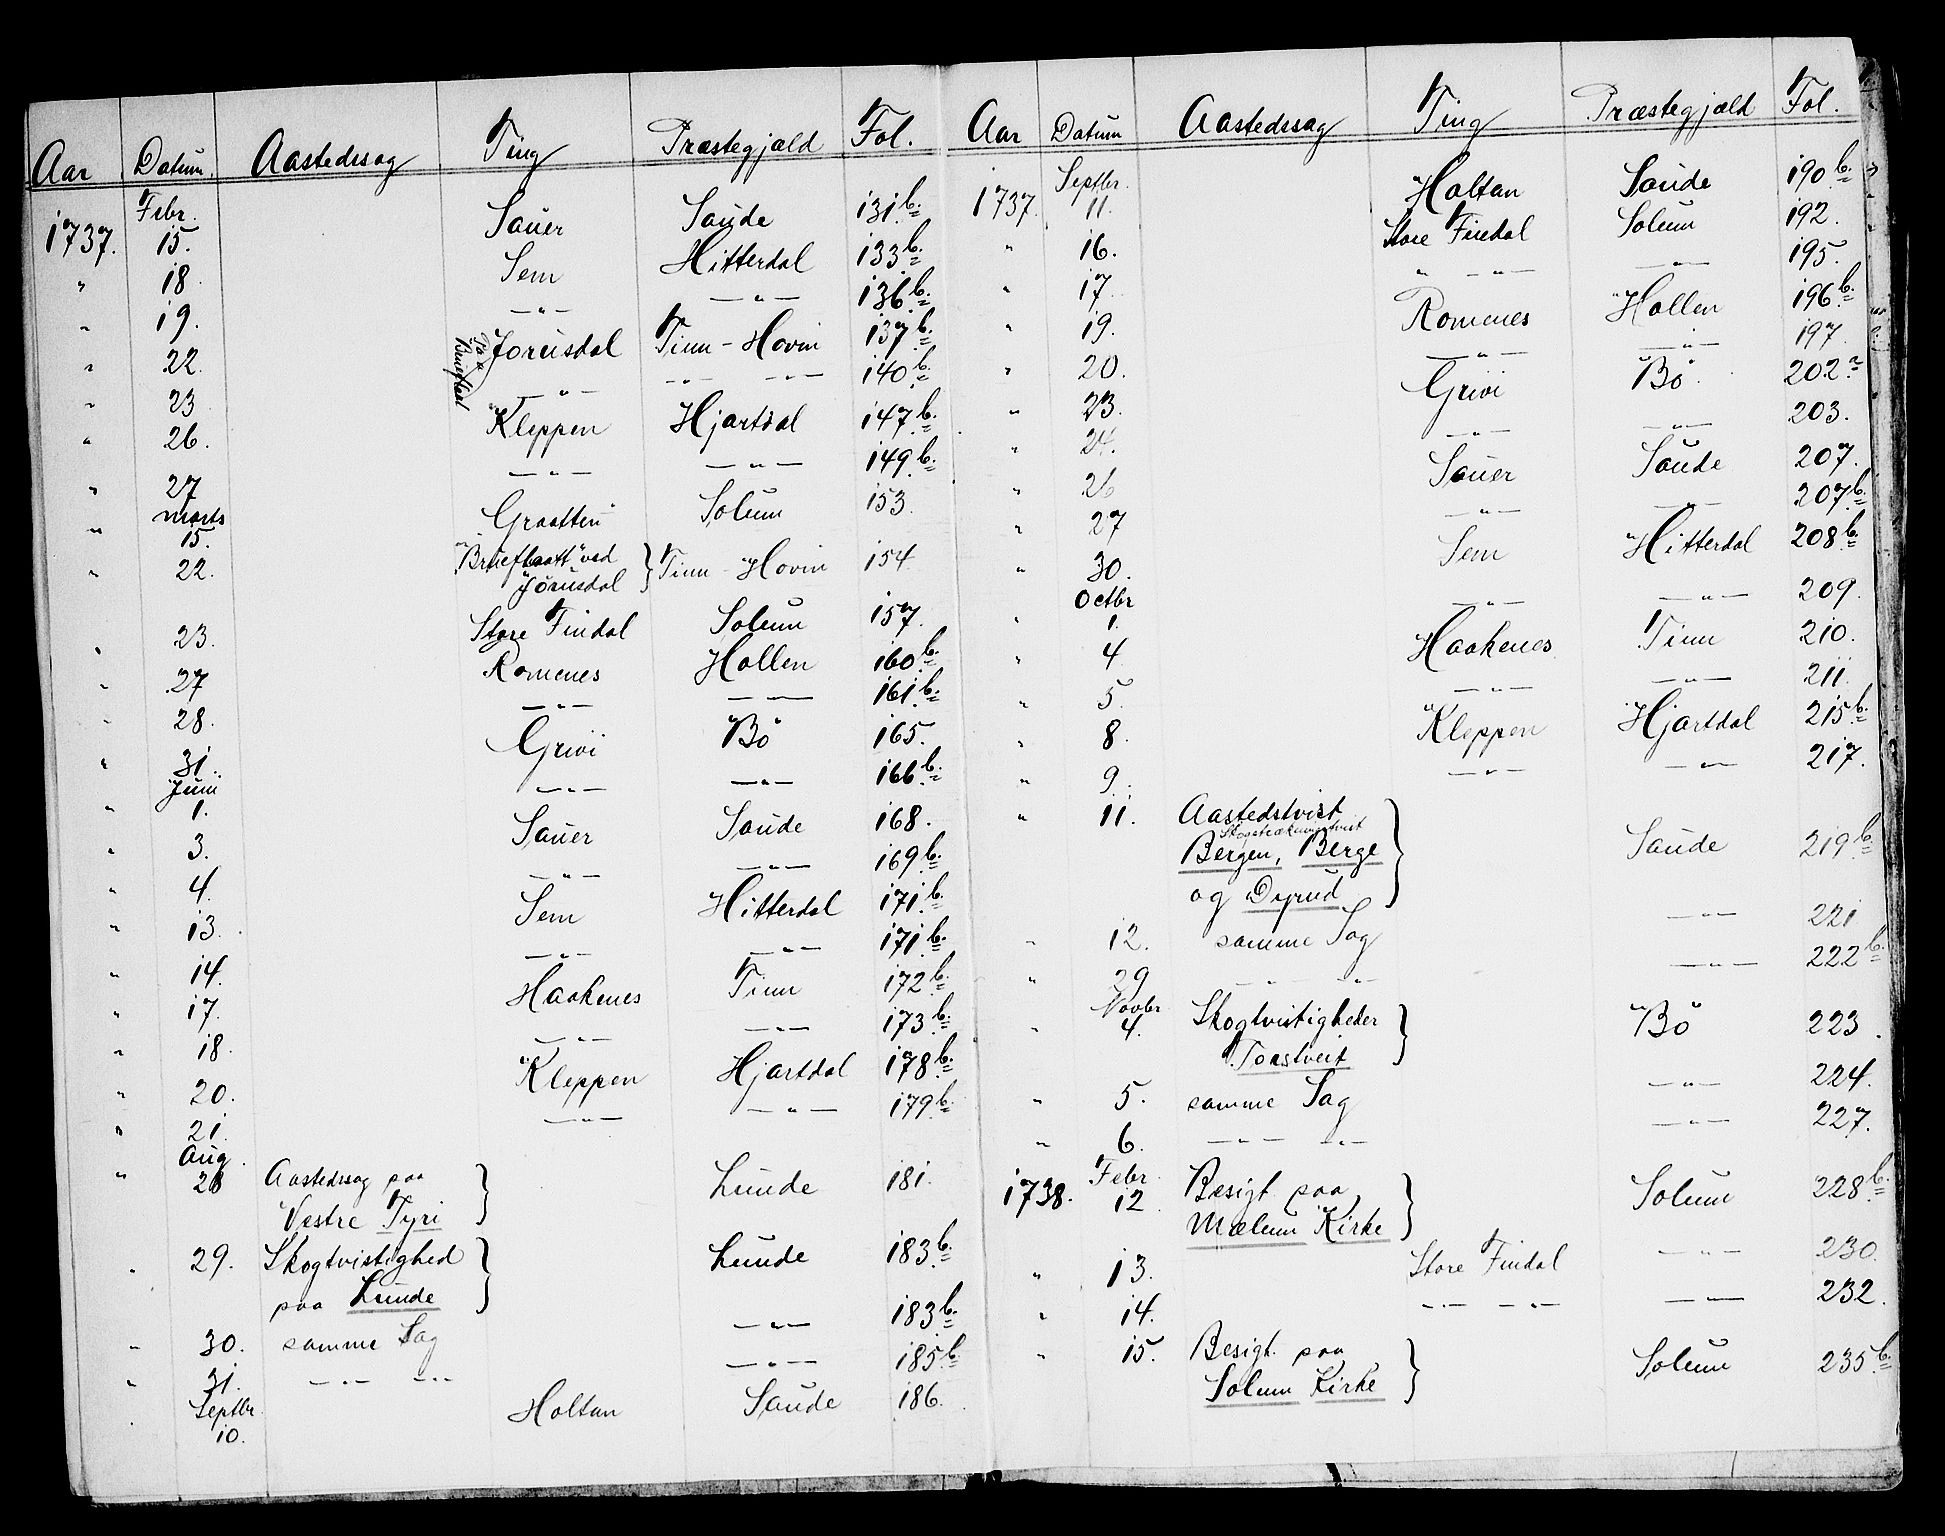 Aar Datum Aastedssag Ting Præstegjæld Fol.
1737. Febr. 15. Sauer Saude 131 b.
" 18. Sem Hitterdal 133 b.
" 19. — " — — " — 136 b.
" 22. Paa Brufladt Joreisdal Tinn - Hovin 137 b.
" 23 — " — - " - - " - 140 b.
" 26. Kleppen Hjartdal 147 b.
" 27 — " — — " — 149 b.
" Marts 15. Graatten Solum 153.
" 22. "Bruflaatt" ved Jörüsdal } Tinn - Hovin 154
" 23. Store Findal Solum 157.
" 27 Romenes Hollen 160 b.
" 28. — " — — " — 161 b.
" 31 Grivi Bö 165.
" Juni 1. — " — — " — 166 b.
" 3. Sauer Saude 168.
" 4. — " — — " — 169 b.
" 13. Sem Hitterdal 171 b.
" 14. — " — — " — 171 b.
" 17. Haakenes Tinn 172 b.
" 18. — " — — " — 173 b.
" 20. Kleppen Hjartdal 178 b.
" 21. — " — — " — 179 b.
" Aug. 28 Aastedssag paa
Vestre Tyri } Lunde 181.
" 29. Skogtvistighed
paa Lunde } Lunde 183 b.
" 30. samme Sag — " — 183 b.
" 31. — " — — " — — " — 185 b.
" Septbr. 10. Holtan Saude 186.
Aar Datum Aastedssag Ting Præstegjæld Fol.
1737. Septbr. 11. Holtan Saude 190 b.
" 16. Store Findal Solum 192.
" 17. " — " — — " — 195.
" 19. Romenes Hollen 196 b.
" 20. — " — — " — 197
" 23. Grivi Bö 202
" 24. — " — — " — 203.
" 26 Sauer Saude 207.
" 27 — " — — " — 207 b.
" 30. Sem Hitterdal 208 b.
" Octbr 1. — " — — " — 209.
" 4. Haakenes Tinn 210.
" 5. — " — — " — 211.
" 8. Kleppen Hjartdal 215 b.
" 9. — " — — " — 217.
" 11. Aastedstvist
Bergen, Berge
og Dyrud } Saude 219 b.
" 12. samme Sag — " — 221
" 29 — " — — " — — " — 222 b.
" Novbr 4. Skogtvistigheder
Torstveit } Bö 223.
" 5. samme Sag — " — 224.
" 6. — " — — " — — " — 227.
1738. Febr 12 Besigt. paa
Mælum Kirke } Solum 228 b.
" 13. Store Findal — " — 230.
" 14. — " — — " — — " — 232.
" 15. Besigt. paa
Solum Kirke } Solum 235 b.